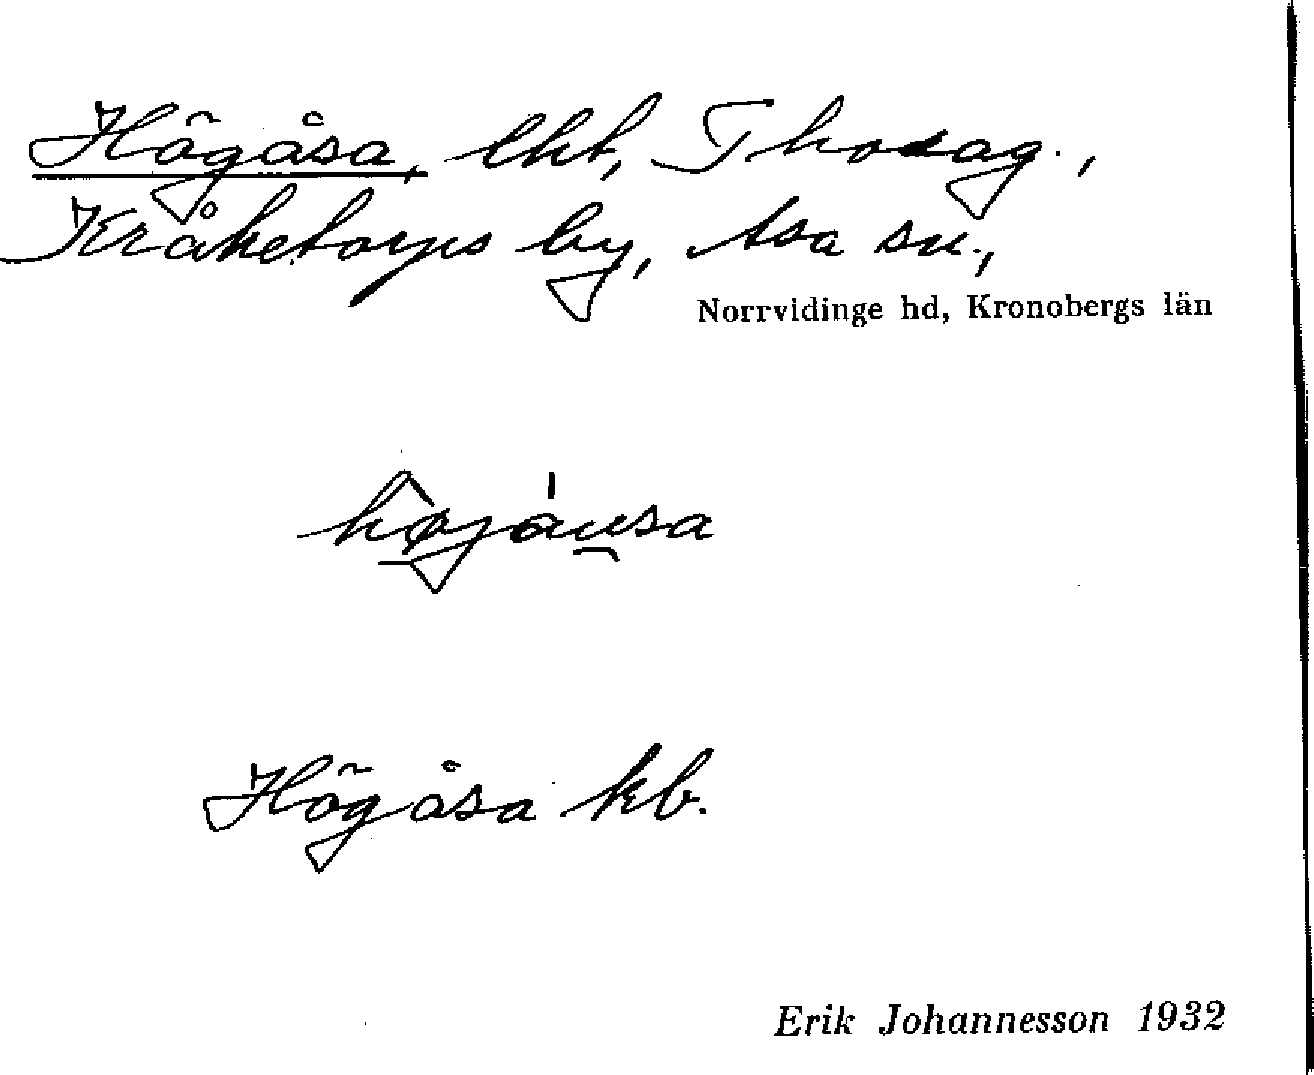 Högåsa, lht, Thorsag.,
Kråketorps by, Asa sn.,
Norrvidinge hd, Kronobergs län
Högåsa kb.
Erik Johannesson 1932